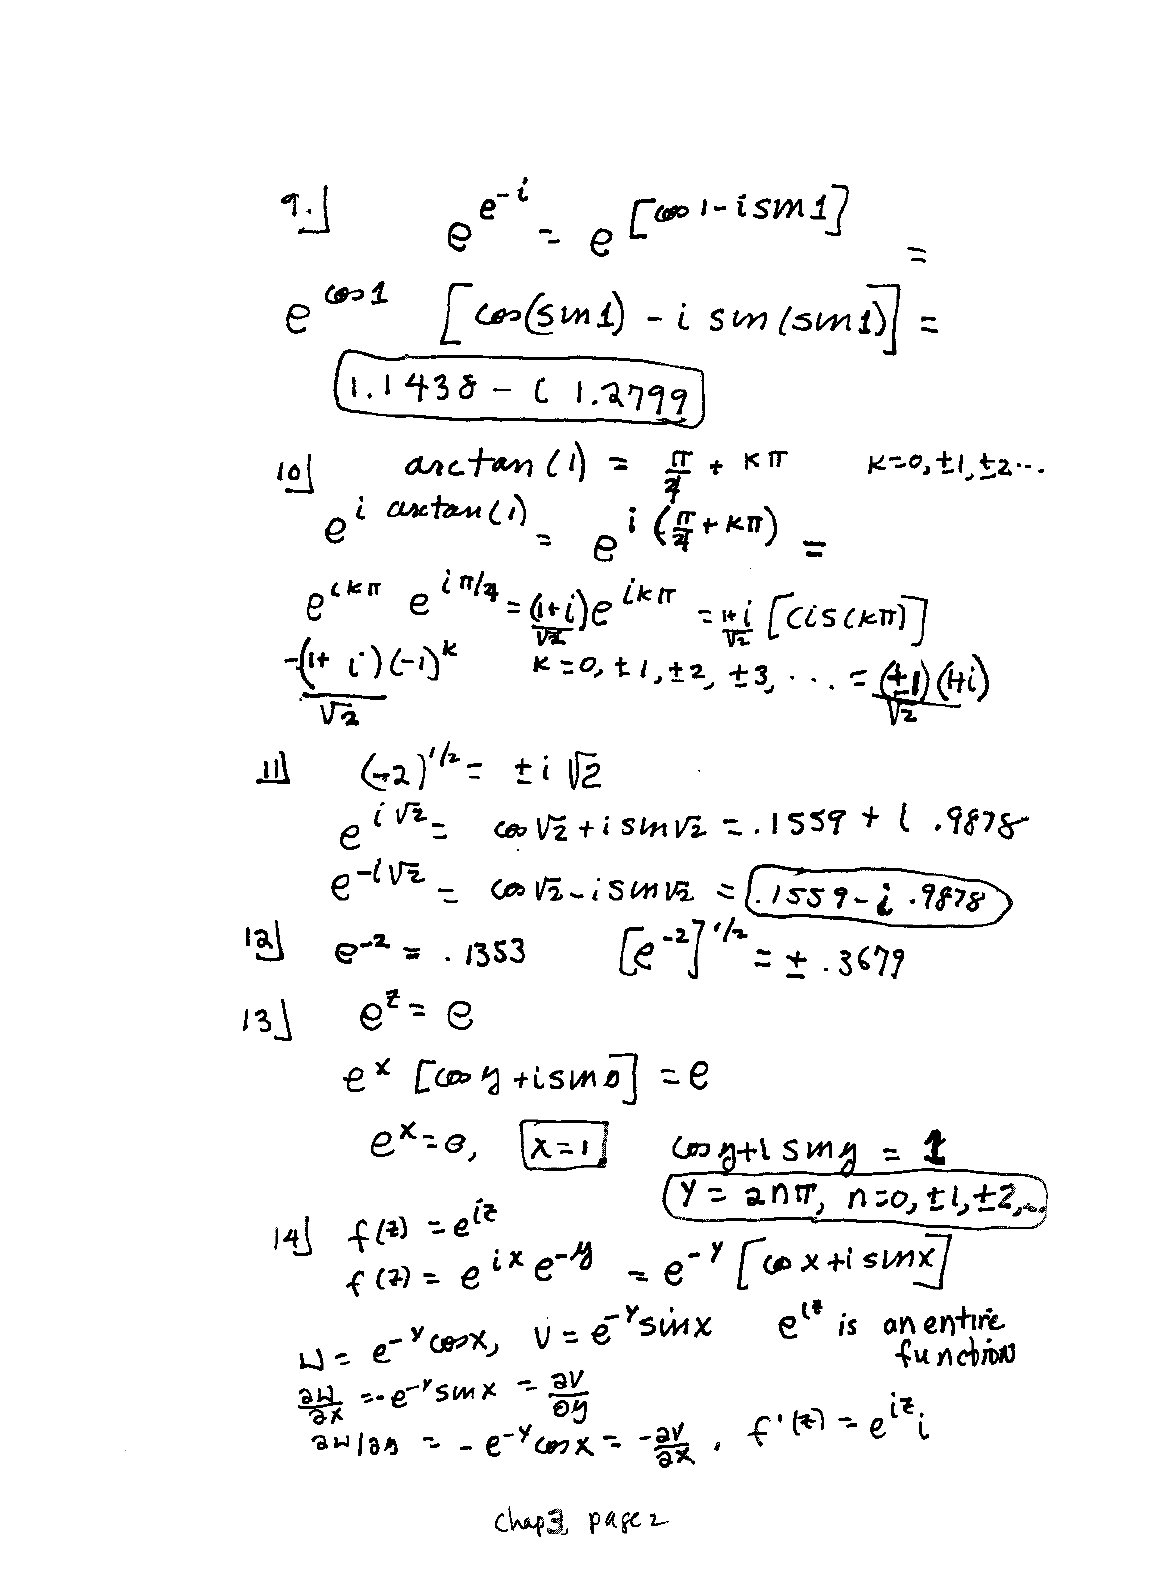 9.] e^{e^{-i}} = e^{[cos 1 - i sin 1]} =
e^{cos 1} [cos(sin 1) - i sin(sin 1)] =
1.1438 - i 1.2799
10] arctan(1) = π/4 + kπ k=0, ±1, ±2...
e^{i arctan(1)} = e^{i(π/4 + kπ)} =
e^{ikπ} e^{iπ/4} = (1+i)/√2 e^{ikπ} = 1+i/√2 [cis(kπ)]
-(1+i)(-1)^k/√2 k=0, ±1, ±2, ±3, ... = (±1)(1+i)/√2
11] (-2)^{1/2} = ±i√2
e^{i√2} = cos √2 + i sin √2 = .1559 + i .9878
e^{-i√2} = cos √2 - i sin √2 = .1559 - i .9878
12] e^{-2} = .1353 [e^{-2}]^{1/2} = ± .3679
13] e^z = e
e^x [cos y + i sin y] = e
e^x = e, x=1 cos y + i sin y = 1
y = 2nπ, n=0, ±1, ±2,...
14] f(z) = e^{iz}
f(z) = e^{ix} e^{-y} = e^{-y} [cos x + i sin x]
u = e^{-y} cos x, v = e^{-y} sin x e^{iz} is an entire
function
∂u/∂x = -e^{-y} sin x = ∂v/∂y
∂u/∂y = -e^{-y} cos x = -∂v/∂x, f'(z) = e^{iz} i
chap 3, page 2